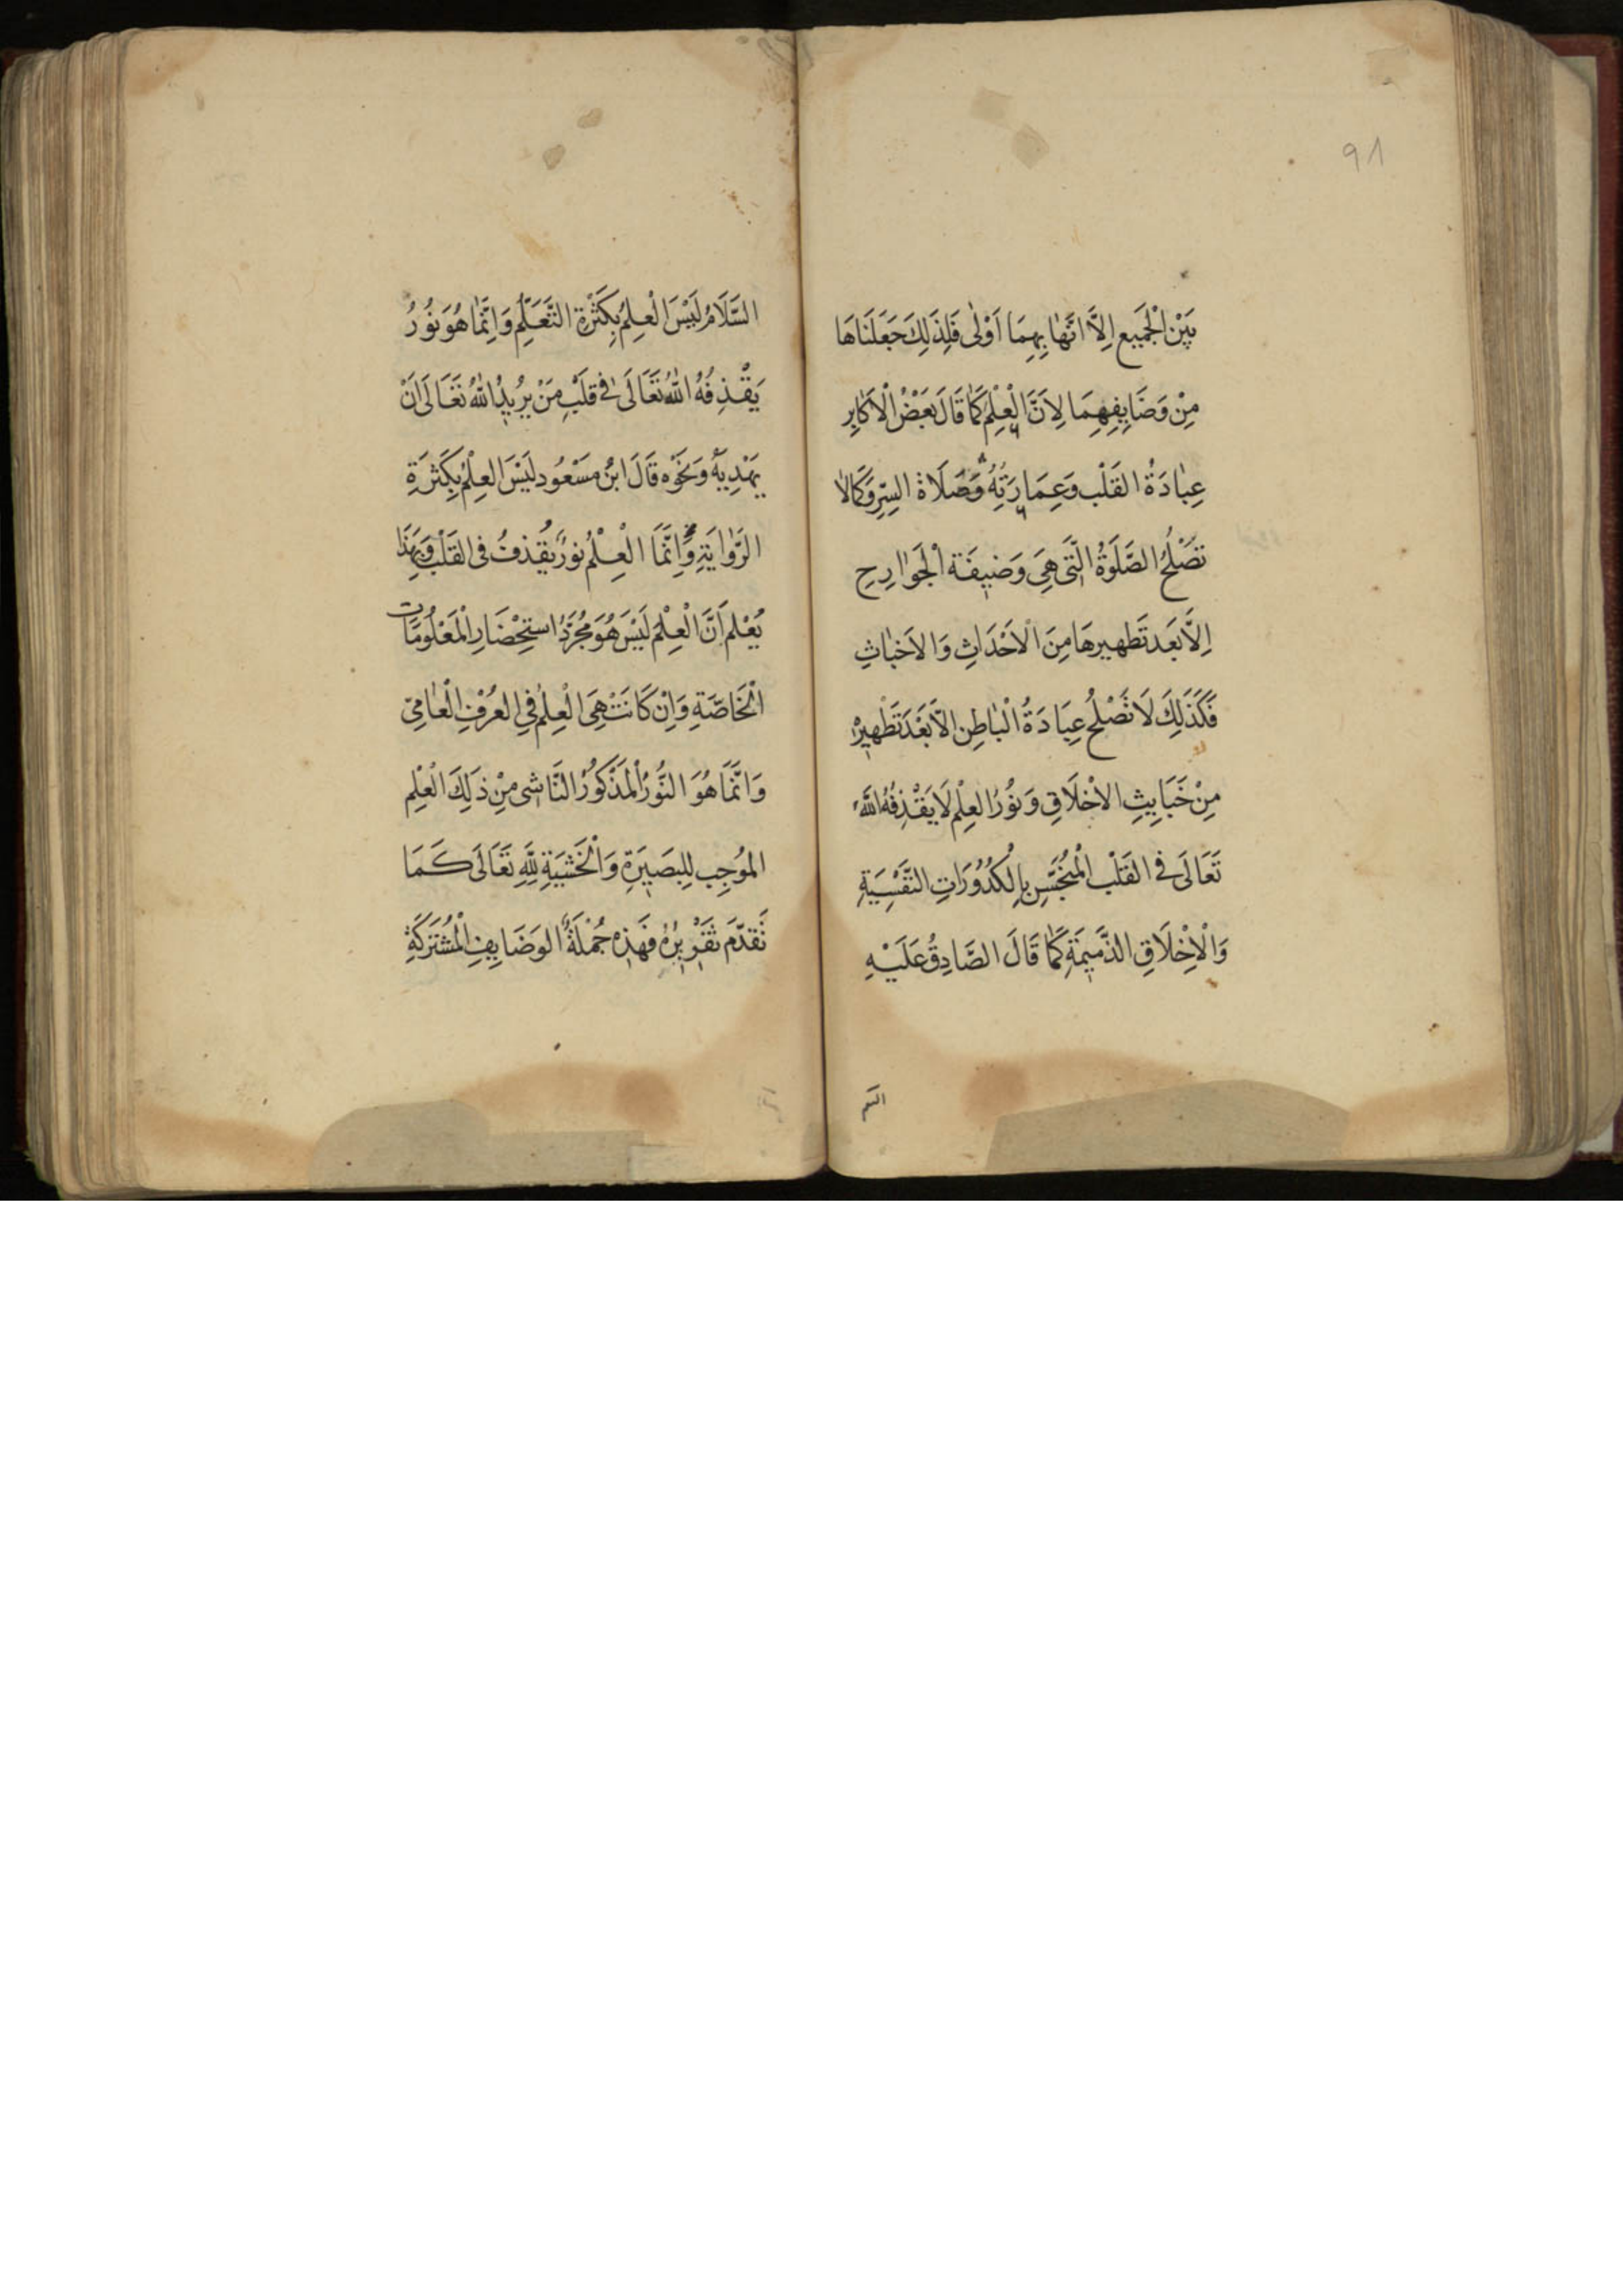 91
بَيْنَ الْجَمِيعِ اِلَّا اَنَّهٰا بِهِمَا اَوْلٰى فَلِذَلِكَ جَعَلْنَاهَا
مِنْ وَضَايِفِهِمَا لِاَنَّ الْعِلْمَ كَمٰا قَالَ بَعْضُ الْاَكَابِرِ
عِبٰادَةُ القَلْبِ وَعِمَارَتِهُ وَصَلَاةُ السِّرِّ وَكَمَا لٰا
تَصْلَحُ الصَّلَوةُ الَّتِى هِىَ وَضِيفَة الْجَوٰارِحِ
اِلَّا بَعدَ تَطهِيرِهَا مِنَ الْاَحْدَاثِ وَالاَخبٰاثِ
فَكَذَلِكَ لَا تَصْلحُ عِبَادَةُ الْبٰاطِنِ اِلَّا بَعْدَ تَطْهِيرِهْ
مِنْ خَبَايِثِ الاَخْلَاقِ وَنُوْرُ العِلْمِ لَا يَقْذِفُهُ اللّٰهُ
تَعَالَى فى القَلْبِ الْمُنَجَّسِ بِالْكُدُوُرَاتِ النَّفْسِيَّةِ
وَالْاَخْلَاقِ الذَّمِيمَةِ كَمٰا قَالَ الصَّادِقُ عَلَيْهِ
السَّم
السَّلَامُ لَيْسَ الْعِلمُ بِكَثْرَةِ التَّعَلُّمِ وَاِنَّمٰا هُوَ نُوْرُ
يَقْذِفُهُ اللّٰهُ تَعَالَى فى قَلْبِ مَنْ يُرِيدُ اللّٰهُ تَعَالَى اَنْ
يَهْدِيَهُ وَنَحْوُه قَالَ ابْنُ مسَعْوُد لَيْسَ العِلْمُ بِكَثرَةِ
الرَّوٰايَةِ وَاِنَّمَا الْعِلْمُ نورٌ يُقْذفُ فى القَلْبْ وَبِهَذَا
يُعْلَم اَنَّ الْعِلْمَ لَيْسَ هُوَ مُجَرَّدُ استِحْضَارِ الْمَعْلُومَات
الْخَاصَّةِ وَاِنْ كَانَتْ هِىَ الْعِلْمُ فى العُرْفِ الْعٰامِىّ
وَاِنَّمَا هُوَ النُّورُ الْمَذْكُوُرُ النَّاشِى مِنْ ذَلِكَ الْعْلِم
المُوجِب لِلبَصِيرَةِ وَالْخَشْيَةِ لِلَّهِ تَعَالَى كَمَا
تَقدَّمَ تقْرِيرُهُ فهَذِهِ جُمْلَةُ الوَضَايِفِ الْمُشْتَرَكَةِ